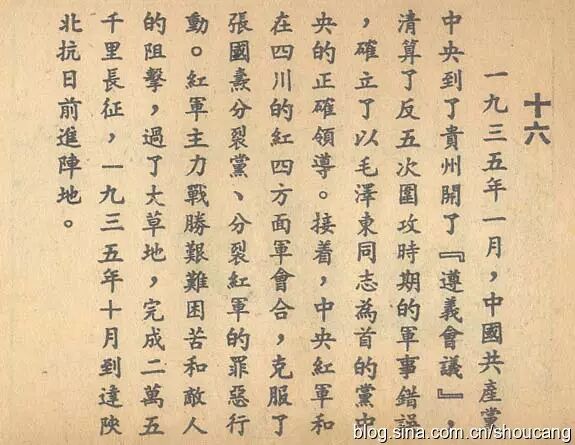 十六
一九三五年一月，中國共產黨
中央到了貴州開了『遵義會議』，
清算了反五次圍攻時期的軍事錯誤
，確立了以毛澤東同志為首的黨中
央的正確領導。接着，中央紅軍和
在四川的紅四方面軍會合，克服了
張國燾分裂黨、分裂紅軍的罪惡行
動。紅軍主力戰勝艱難困苦和敵人
的阻擊，過了大草地，完成二萬五
千里長征，一九三五年十月到達陝
北抗日前進陣地。
blog.sina.com.cn/shoucang